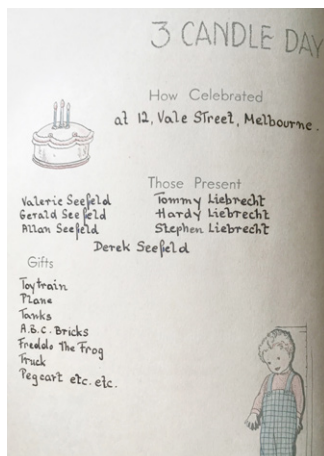 3 CANDLE DAY
How Celebrated
at 12, Vale Street, Melbourne.
Those Present
Valerie Seefeld Tommy Liebrecht
Gerald Seefeld Hardy Liebrecht
Allan Seefeld Stephen Liebrecht
Derek Seefeld
Gifts
Toytrain
Plane
Tanks
A.B.C. Bricks
Freddo The Frog
Truck
Pegcart etc. etc.